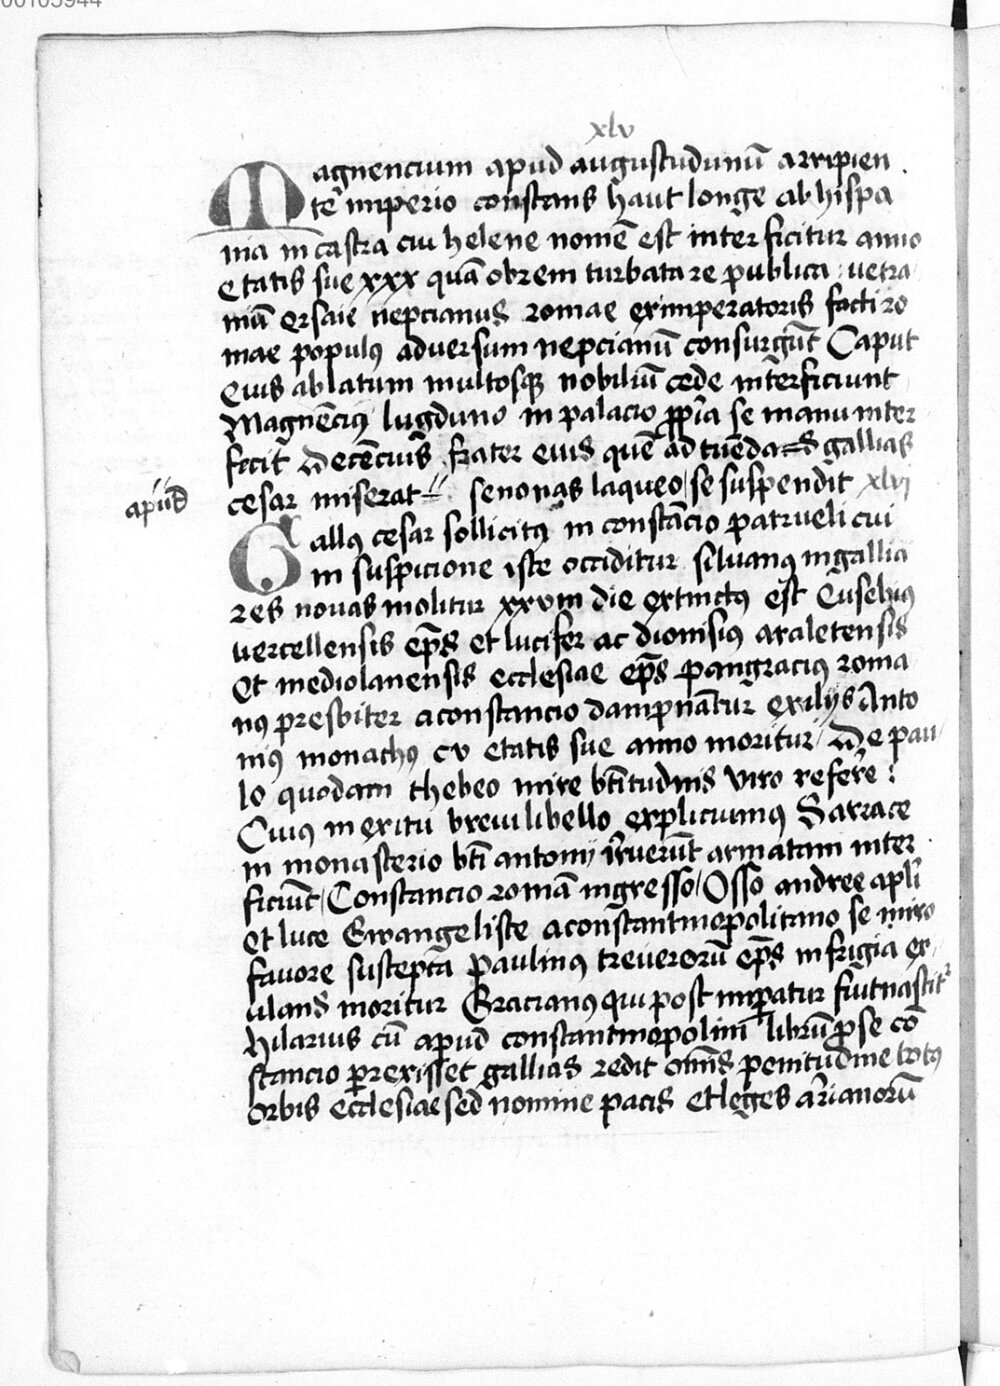 00105944
xlv
Magnencium apud augustudunū arripien
tē imperio constans haut longe ab hispa
nia in castra cui helene nomē est inter ficitur anno
etatis sue xxx quā obrem turbata re publica vetra
niū ersaie nepcianus romae eximperatoris facti ro
mae populꝰ adversum nepcianū consurgūt Caput
Eius ablatum multosqꝫ nobiliū cede īnterficiunt
Magnēciꝰ lugduno in palacio ꝓpīa se manu inter
fecit Decēcius frater eius quē ad tuēdas gallias
cesar miserat senonas laqueo se suspendit xlvi
apūd
Gallꝰ cesar sollicitꝰ in constācio patrueli cui
in suspicione iste occiditur silvanꝰ in gallia
res novas molitur xxviii die extinctꝰ est Eusebius
vercellensis ep̄s et lucifer ac dionisius araletensis
Et mediolanensis ecclesiae ep̄s pangraciꝰ roma
nꝰ presbiter a constancio dampnātur exilijs Anto
niꝰ monachꝰ cv etatis sue anno moritur De pau
lo quodam thebeo mire bt̄itudinis viro refere
Cuius in exitu brevi libello expliciumꝰ Sarrace
in monasterio bt̄i antonij irruerūt armatam inter
ficiūt Constancio romā ingresso Osso andree apl̄i
et luce Ewangeliste a constantinopolitano se miro
favore suscepta Paulinꝰ treverorū ep̄s in frigia ex
ulans moritur Gracianꝰ qui post imꝑatur fuit nascit
Hilarius cū apud constantinopolim librū ꝓ se cō
stancio ꝑrexisset gallias redit om̄is penitudine totꝰ
orbis ecclesiae sed nomine pacis et leges arianorū